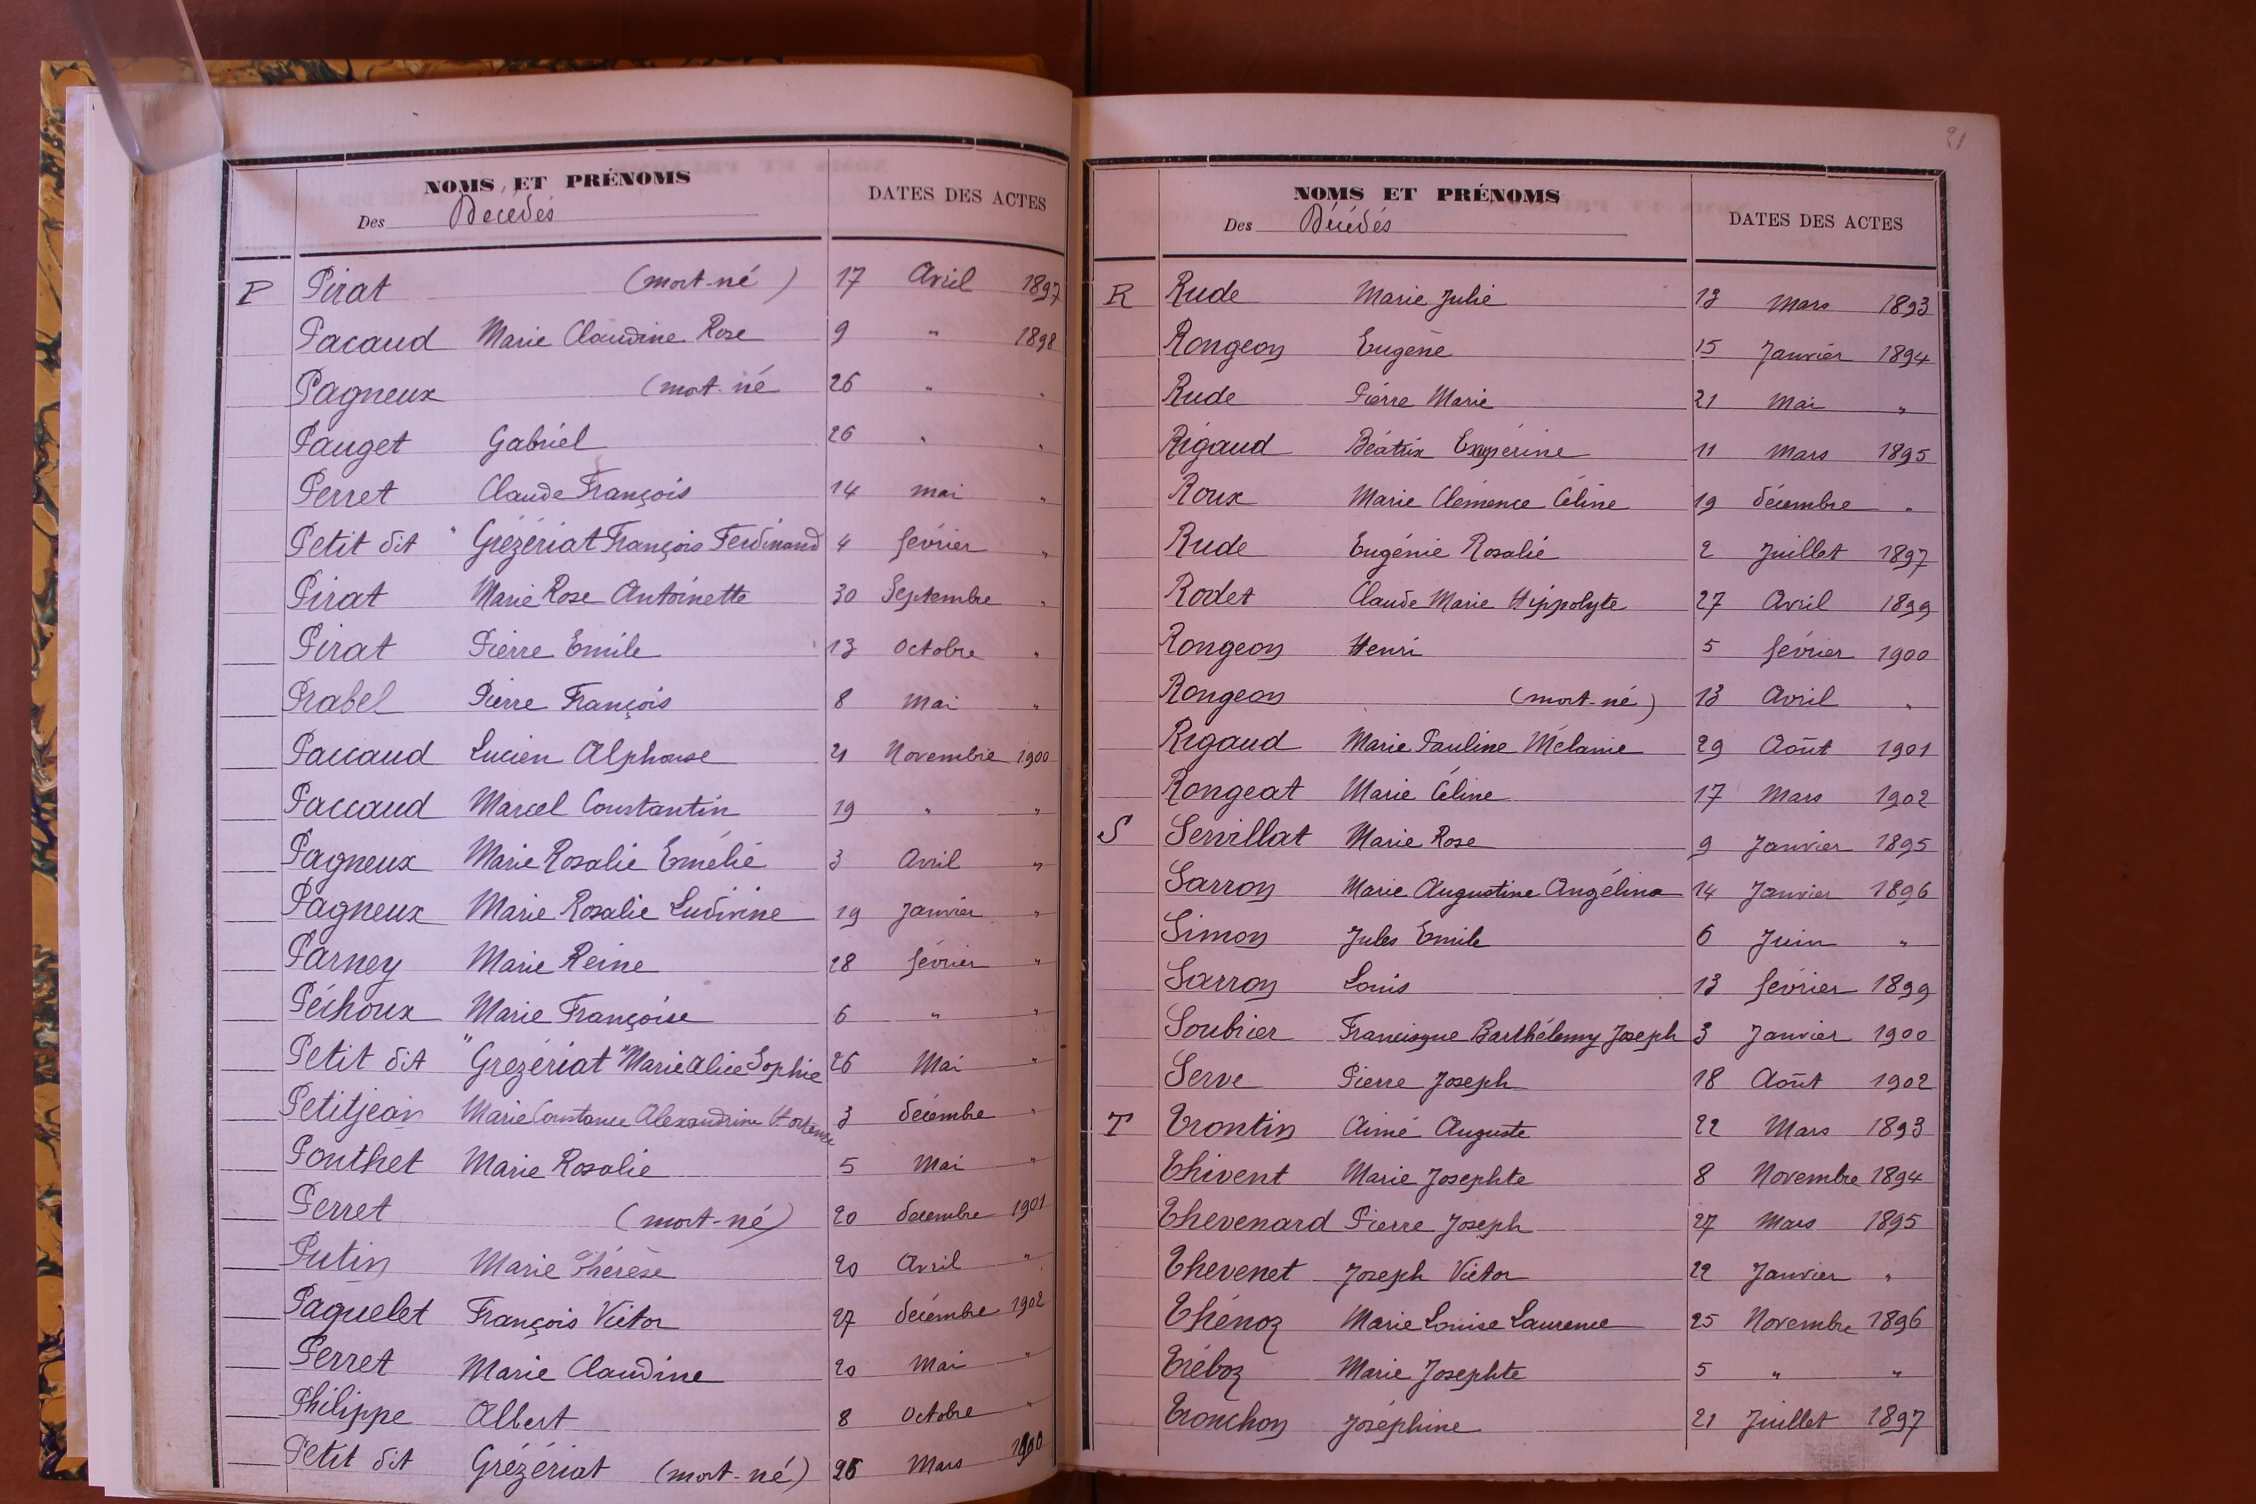 NOMS ET PRÉNOMS
Des Décédés
DATES DES ACTES
P Pirat (mort-né) 17 Avril 1897
Pacaud Marie Claudine Rose 9 " 1898
Pagneux (mort-né 26 " "
Pauget Gabriel 26 " "
Perret Claude François 14 mai "
Petit dit " Grézériat François Ferdinand 4 février "
Pirat Marie Rose Antoinette 30 Septembre "
Pirat Pierre Emile 13 Octobre "
Prabel Pierre François 8 Mai "
Paccaud Lucien Alphonse 21 Novembre 1900
Paccaud Marcel Constantin 19 " "
Pagneux Marie Rosalie Emélie 3 Avril "
Pagneux Marie Rosalie Ludivine 19 Janvier "
Parney Marie Reine 28 février "
Péchoux Marie Françoise 6 " "
Petit dit "Grezériat" Marie Alice Sophie 26 Mai "
Petitjean Marie Constance Alexandrine Hortense 3 décembre "
Ponthet Marie Rosalie 5 Mai "
Perret (mort-né) 20 décembre 1901
Putin Marie Thérèse 20 Avril "
Paquelet François Victor 27 décembre 1902
Perret Marie Claudine 20 Mai "
Philippe Albert 8 Octobre "
Petit dit Grézériat (mort-né) 26 Mars 1900
21
NOMS ET PRÉNOMS
Des Décédés
DATES DES ACTES
R Rude Marie Julie 13 Mars 1893
Rongeon Eugène 15 Janvier 1894
Rude Pierre Marie 21 Mai "
Rigaud Béatrix Exupérine 11 Mars 1895
Roux Marie Clémence Céline 19 décembre "
Rude Eugénie Rosalie 2 Juillet 1897
Rodet Claude Marie Hippolyte 27 Avril 1899
Rongeon Henri 5 février 1900
Rongeon (mort-né) 13 Avril "
Rigaud Marie Pauline Mélanie 29 Août 1901
Rongeat Marie Céline 17 Mars 1902
S Servillat Marie Rose 9 Janvier 1895
Sarron Marie Augustine Angélina 14 Janvier 1896
Simon Jules Emile 6 Juin "
Sarron Louis 13 février 1899
Soubrier Francisque Barthélemy Joseph 3 Janvier 1900
Serve Pierre Joseph 18 Août 1902
T Trontin Aimé Auguste 22 Mars 1893
Thivent Marie Josephte 8 Novembre 1894
Thevenard Pierre Joseph 27 Mars 1895
Thevenet Joseph Victor 22 Janvier "
Thénoz Marie Louise Laurence 25 Novembre 1896
Tréboz Marie Josephte 5 " "
Tronchon Joséphine 21 Juillet 1897